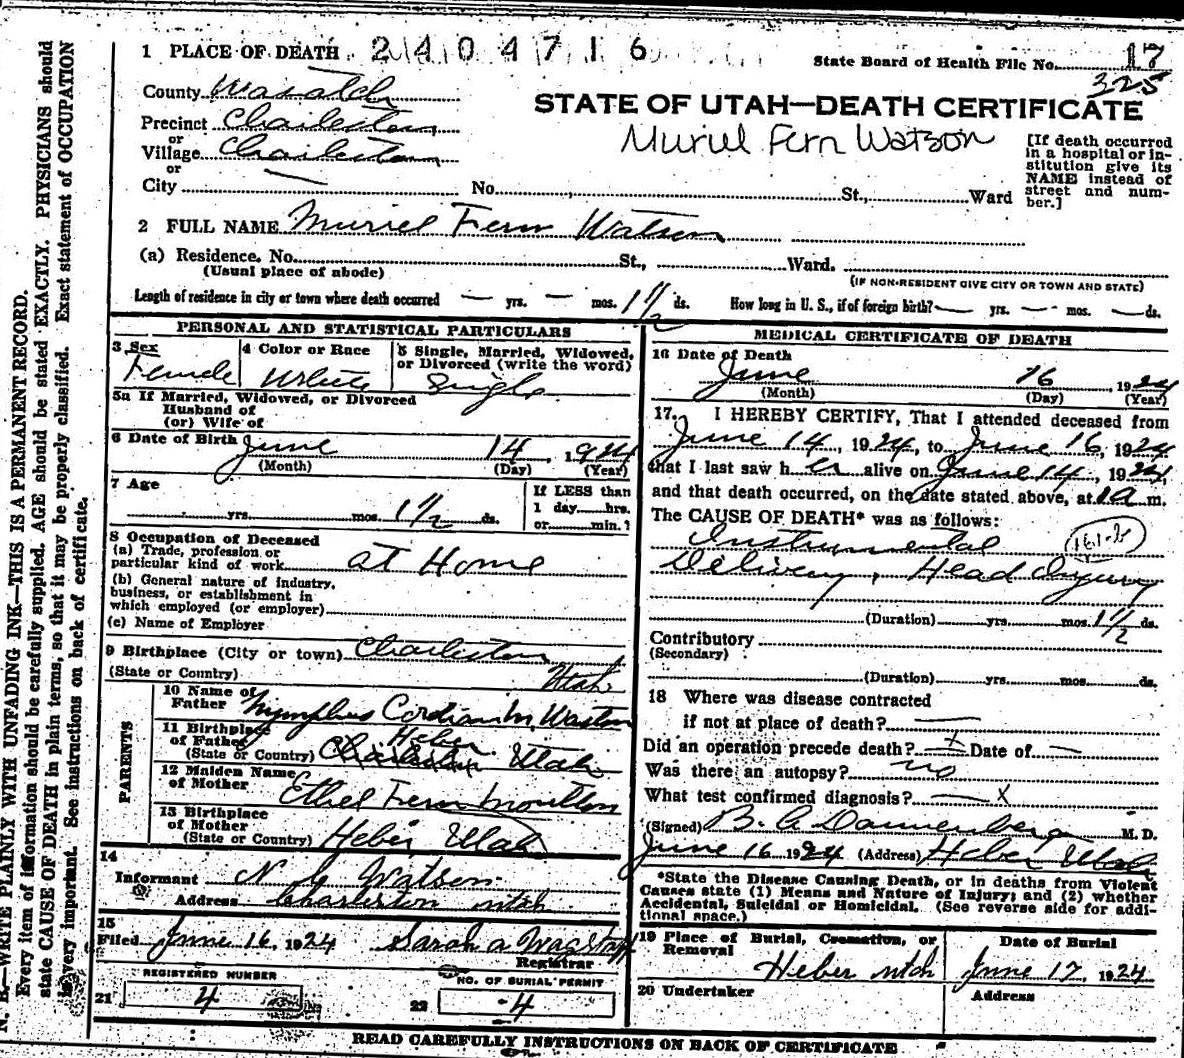 1 PLACE OF DEATH 2404716
State Board of Health File No. 17
325
County Wasatch
STATE OF UTAH—DEATH CERTIFICATE
Precinct Charleston
Muriel Fern Watson
or
Village Charleston
or
City — No. St., Ward
[If death occurred
in a hospital or in-
stitution give its
NAME instead of
street and num-
ber.]
2 FULL NAME Muriel Fern Watson
(a) Residence. No. St., Ward.
(Usual place of abode)
(IF NON-RESIDENT GIVE CITY OR TOWN AND STATE)
Length of residence in city or town where death occurred — yrs. — mos. 1 1/2 ds. How long in U. S., if of foreign birth? — yrs. — mos. — ds.
PERSONAL AND STATISTICAL PARTICULARS
3 Sex
Female
4 Color or Race
White
5 Single, Married, Widowed,
or Divorced (write the word)
Single
5a If Married, Widowed, or Divorced
Husband of
(or) Wife of
6 Date of Birth June 14, 1924
(Month) (Day) (Year)
7 Age
yrs. mos. 1 1/2 ds.
If LESS than
1 day hrs.
or min.?
8 Occupation of Deceased
(a) Trade, profession or
particular kind of work at Home
(b) General nature of industry,
business, or establishment in
which employed (or employer)
(c) Name of Employer
9 Birthplace (City or town) Charleston
(State or Country) Utah
PARENTS
10 Name of
Father Nymphus Cordian M. Waston
11 Birthplace Heber
of Father
(State or Country) Charleston Utah
12 Maiden Name
of Mother Ethel Fern Moulton
13 Birthplace
of Mother
(State or Country) Heber, Utah
14
Informant N C Watson
Address Charleston utah
15
Filed June 16, 1924 Sarah A Wagstaff
Registrar
REGISTERED NUMBER
21 4
NO. OF BURIAL PERMIT
22 -4
MEDICAL CERTIFICATE OF DEATH
16 Date of Death
June 16, 1924
(Month) (Day) (Year)
17. I HEREBY CERTIFY, That I attended deceased from
June 14, 1924, to June 16, 1924
that I last saw her alive on June 14, 1924,
and that death occurred, on the date stated above, at 1 a m.
The CAUSE OF DEATH* was as follows:
Instrumental
Delivery, Head Injury
(Duration) yrs. mos. 1 1/2 ds.
Contributory
(Secondary)
(Duration) yrs. mos. ds.
18 Where was disease contracted
if not at place of death? —
Did an operation precede death? — Date of —
Was there an autopsy? no
What test confirmed diagnosis? — X
(Signed) B. A. Dannenberg M. D.
June 16 1924 (Address) Heber Utah
*State the Disease Causing Death, or in deaths from Violent
Causes state (1) Means and Nature of Injury; and (2) whether
Accidental, Suicidal or Homicidal. (See reverse side for addi-
tional space.)
19 Place of Burial, Cremation, or
Removal
Heber utah
Date of Burial
June 17, 1924
20 Undertaker
Address
READ CAREFULLY INSTRUCTIONS ON BACK OF CERTIFICATE
N. B.—WRITE PLAINLY WITH UNFADING INK—THIS IS A PERMANENT RECORD.
Every item of information should be carefully supplied. AGE should be stated EXACTLY. PHYSICIANS should
state CAUSE OF DEATH in plain terms, so that it may be properly classified. Exact statement of OCCUPATION
is very important. See instructions on back of certificate.